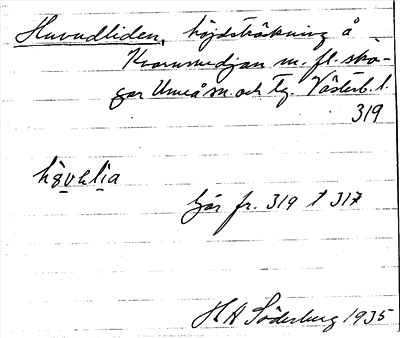 Huvudliden, höjdsträckning å
Kvarnmedjan m. fl. sko-
gar Umeå sn. och tg. Västerb. l.
319
Går fr. 319 t 317
H A Söderberg 1935